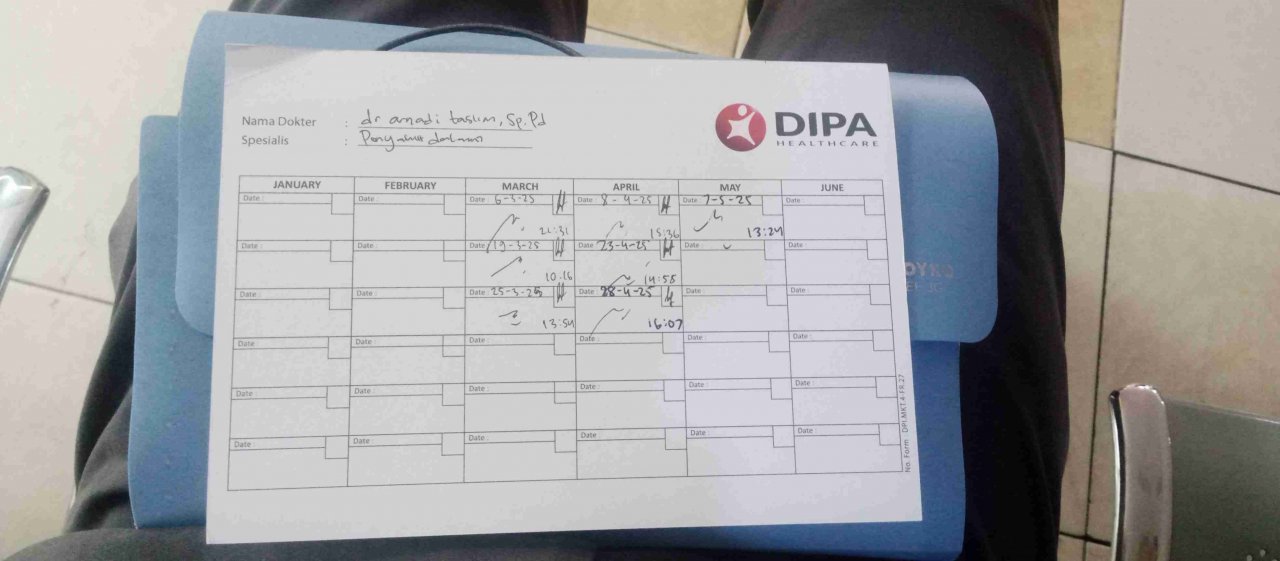 Nama Dokter : dr arnadi taslim, Sp.Pd
Spesialis : Penyakit dalam
DIPA
HEALTHCARE
JANUARY FEBRUARY MARCH APRIL MAY JUNE
Date : Date : Date : 6-3-25 Date : 8-4-25 Date : 7-5-25 Date :
21:31 15:36 13:24
Date : Date : Date : 19-3-25 Date : 23-4-25 Date : Date :
10:16 14:58
Date : Date : Date : 25-3-25 Date : 28-4-25 Date : Date :
13:54 16:07
Date : Date : Date : Date : Date : Date :
Date : Date : Date : Date : Date : Date :
Date : Date : Date : Date : Date : Date :
No. Form DPI.MKT.4-FR.27